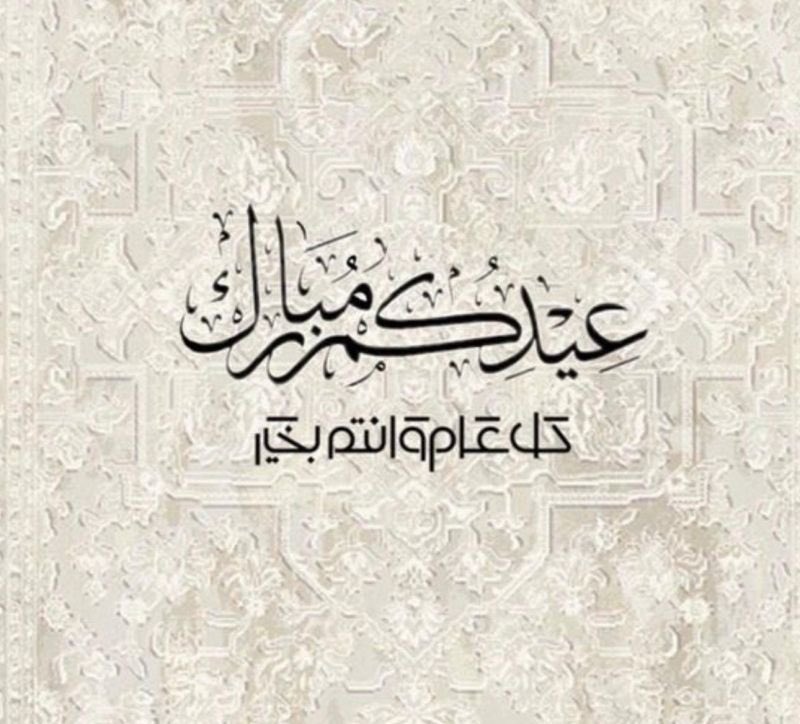 عِيدُكُم مُبارك
كل عام وانتم بخير